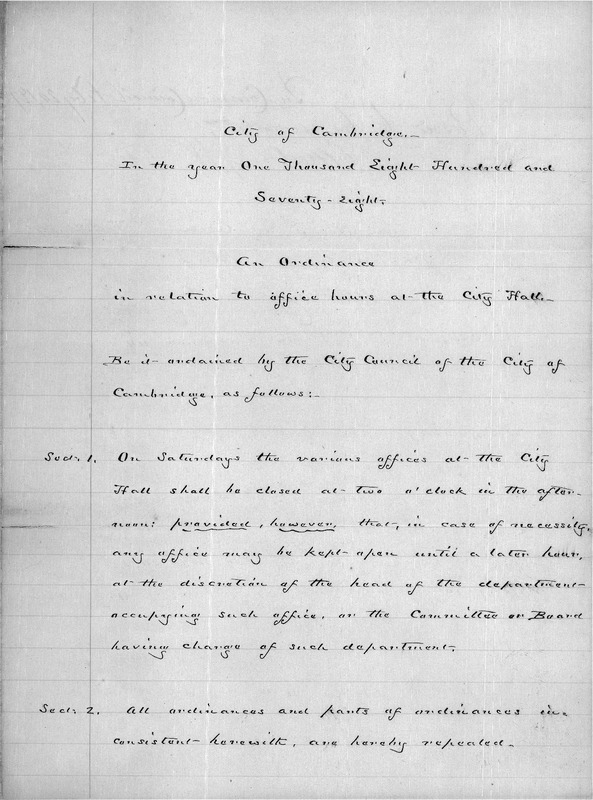 City of Cambridge.
In the year One Thousand Eight Hundred and
Seventy-eight.
An Ordinance
in relation to office hours at the City Hall.
Be it ordained by the City Council of the City of
Cambridge, as follows:
Sect. 1. On Saturdays the various offices at the City
Hall shall be closed at two o'clock in the after-
noon: provided, however, that, in case of necessity,
any office may be kept open until a later hour,
at the discretion of the head of the department
occupying such office, or the Committee or Board
having charge of such department.
Sect. 2. All ordinances and parts of ordinances in-
consistent herewith, are hereby repealed.